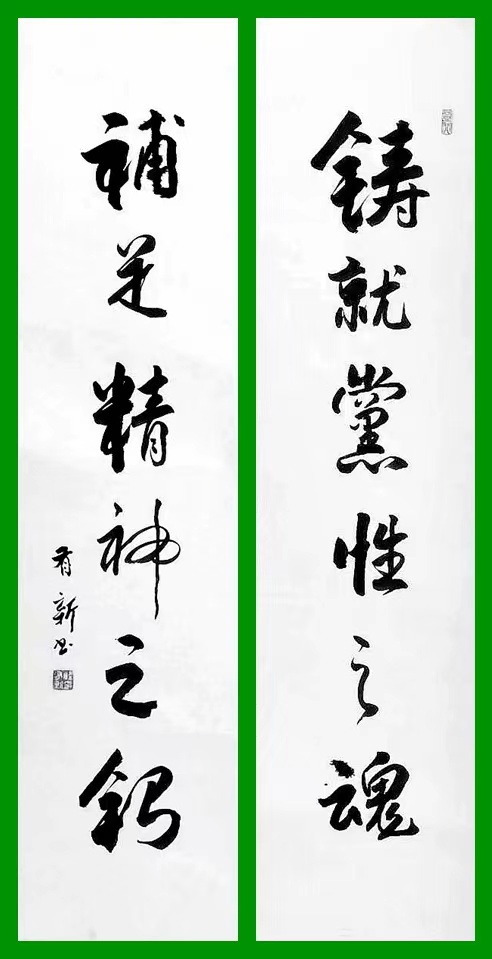 鑄就黨性之魂
補足精神之鈣
有新书